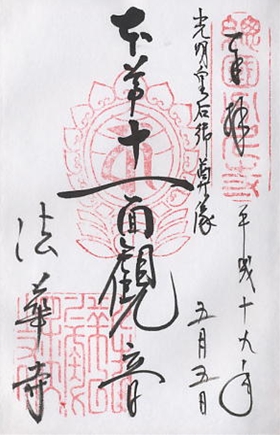 奉拝
平成十九年
五月五日
光明皇后御尊像
本尊十一面観音
法華寺
總國分尼寺